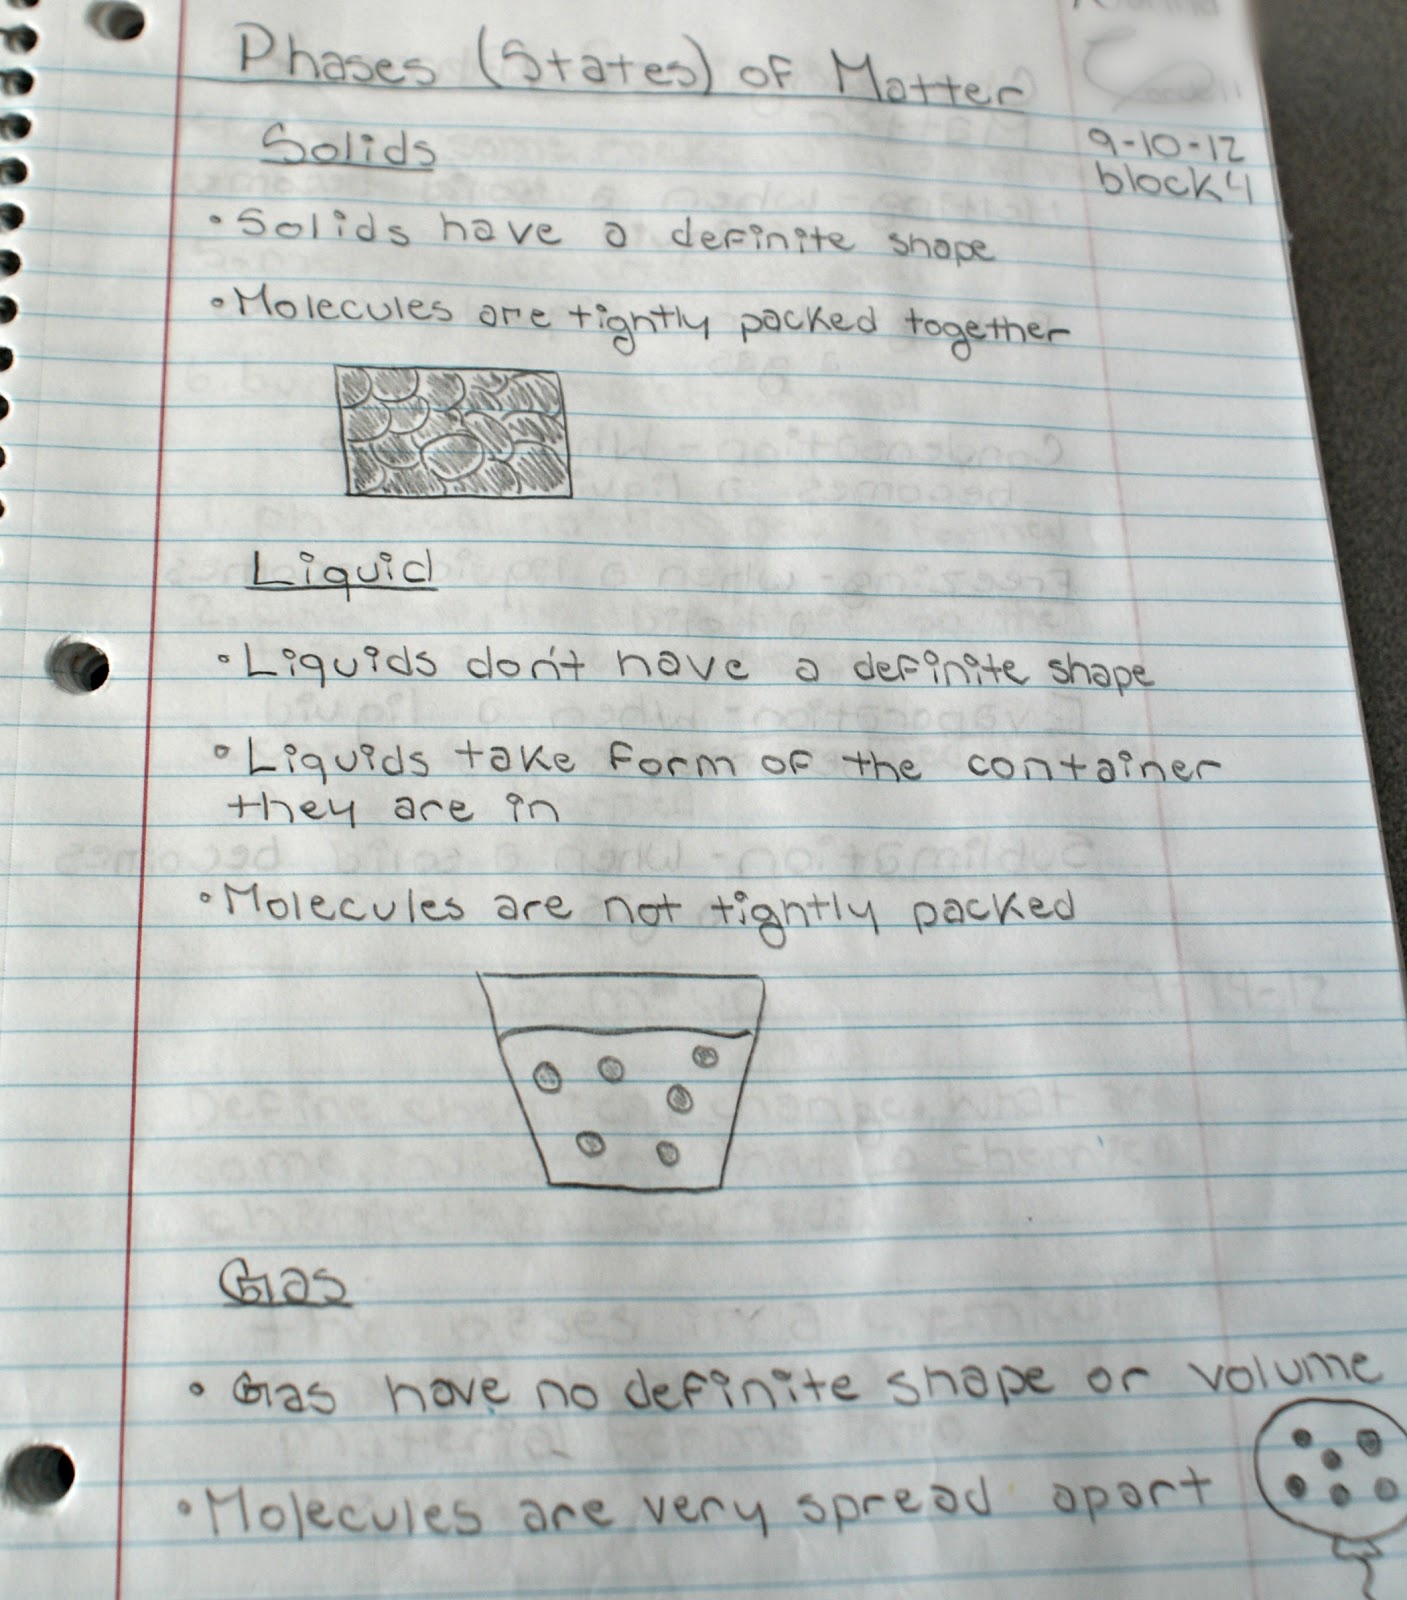 Phases (States) of Matter
9-10-12
block 4
Solids
• Solids have a definite shape
• Molecules are tightly packed together
Liquid
• Liquids don't have a definite shape
• Liquids take form of the container
they are in
• Molecules are not tightly packed
Gas
• Gas have no definite shape or volume
• Molecules are very spread apart